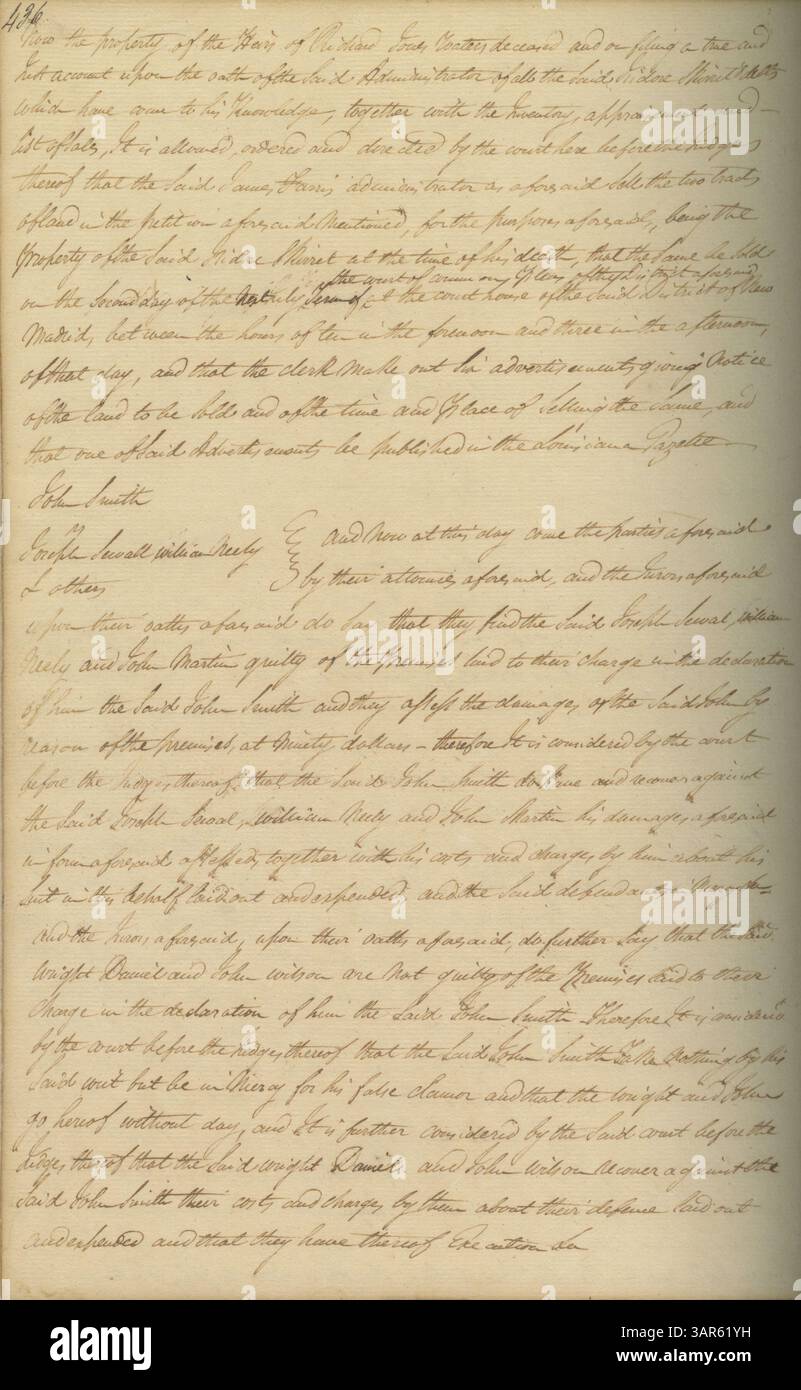 436
Now the property of the Heirs of Richard Jones Waters deceased and on filing a true and
Just account upon the oath of the said Administrator of all the said Isidore Skirret debts
which have come to his Knowledge, together with the Inventory, appraisement and
list of Sales, It is allowed, ordered and directed by the court here before the Judges
thereof that the said James Farris administrator as aforesaid Sell the two tracts
of land in the petition aforesaid Mentioned, for the purposes aforesaid, being the
Property of the said Isidore Skirret at the time of his death, that the Same be Sold
the court of common Pleas of the District aforesaid
on the Second day of the Next July Term of at the court house of the said District of New
Madrid, between the hours of ten in the forenoon and three in the afternoon,
of that day, and that the clerk make out Six advertisements giving Notice
of the land to be Sold and of the time and Place of Selling the Same, and
that one of said Advertisements be published in the Louisiana Gazette
John Smith
vs
Joseph Sewall, william Neely
& others
and Now at this day come the parties aforesaid
by their attornies aforesaid, and the Jurors aforesaid
upon their oaths aforesaid do Say that they find the said Joseph Sewal, william
Neely and John Martin guilty of the Premises laid to their charge in the declaration
of him the said John Smith and they assess the damages of the said John by
reason of the premises, at Ninety dollars – therefore It is considered by the court
before the Judges thereof that the said John Smith do have and recover against
the said Joseph Sewal, william Neely and John Martin his damages aforesaid
in form aforesaid assessed, together with his costs and charges by him about his
Suit in this behalf laid out and expended, and the said defendants in Mercy &c
and the Jurors aforesaid, upon their oaths aforesaid, do further Say that the said
Wright Daniel and John wilson are Not guilty of the Premises laid to their
charge in the declaration of him the said John Smith Therefore It is considered
by the court before the Judges thereof that the said John Smith Take Nothing by his
Said writ but be in Mercy for his false clamor and that the wright and John
go hereof without day, and It is further considered by the said court before the
Judges thereof that the said wright Daniel and John wilson recover against the
Said John Smith their costs and charges by them about their defence laid out
and expended and that they have thereof Execution &c
alamy
Image ID: 3AR61YH
www.alamy.com